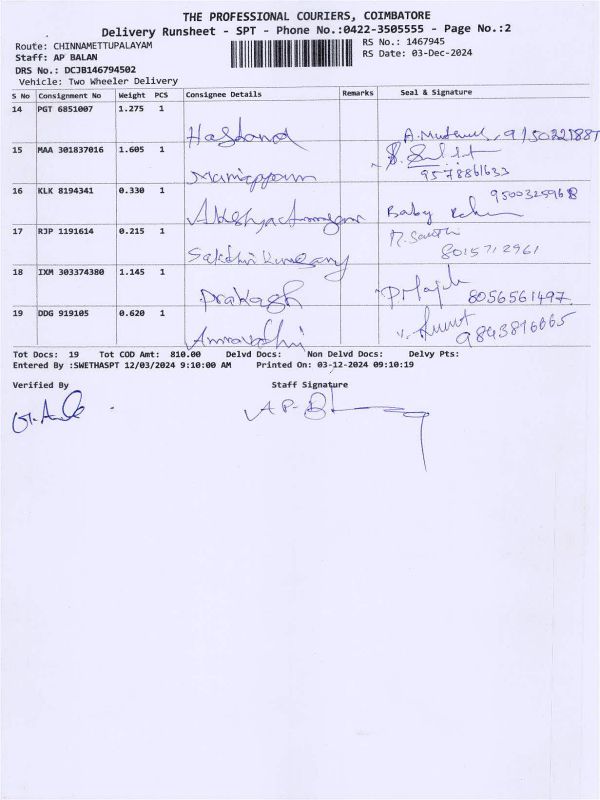 THE PROFESSIONAL COURIERS, COIMBATORE
Delivery Runsheet - SPT - Phone No.:0422-3505555 - Page No.:2
Route: CHINNAMETTUPALAYAM
RS No.: 1467945
Staff: AP BALAN
RS Date: 03-Dec-2024
DRS No.: DCJB146794502
Vehicle: Two Wheeler Delivery
S No Consignment No Weight PCS Consignee Details Remarks Seal & Signature
14 PGT 6851007 1.275 1
15 MAA 301837016 1.605 1
9578861633
16 KLK 8194341 0.330 1
9500325968
Baby
17 RJP 1191614 0.215 1
8015712961
18 IXM 303374380 1.145 1
Prakash
8056561497
19 DDG 919105 0.620 1
9843816665
Tot Docs: 19 Tot COD Amt: 810.00 Delvd Docs: Non Delvd Docs: Delvy Pts:
Entered By :SWETHASPT 12/03/2024 9:10:00 AM Printed On: 03-12-2024 09:10:19
Verified By Staff Signature
AP-B